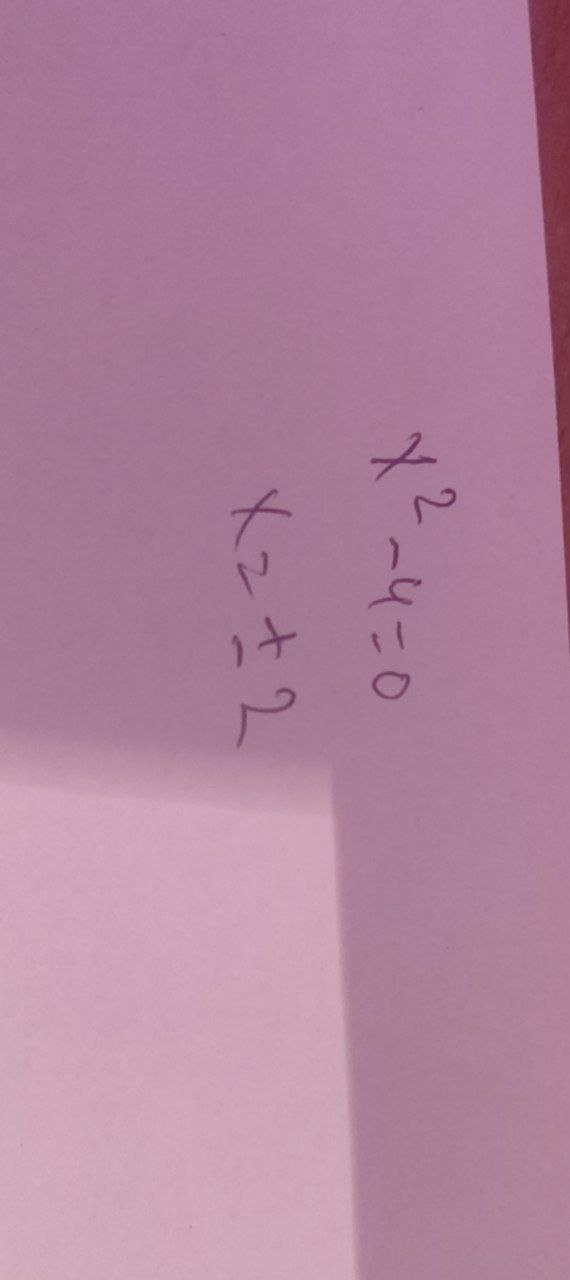 x² -4=0
x = ± 2